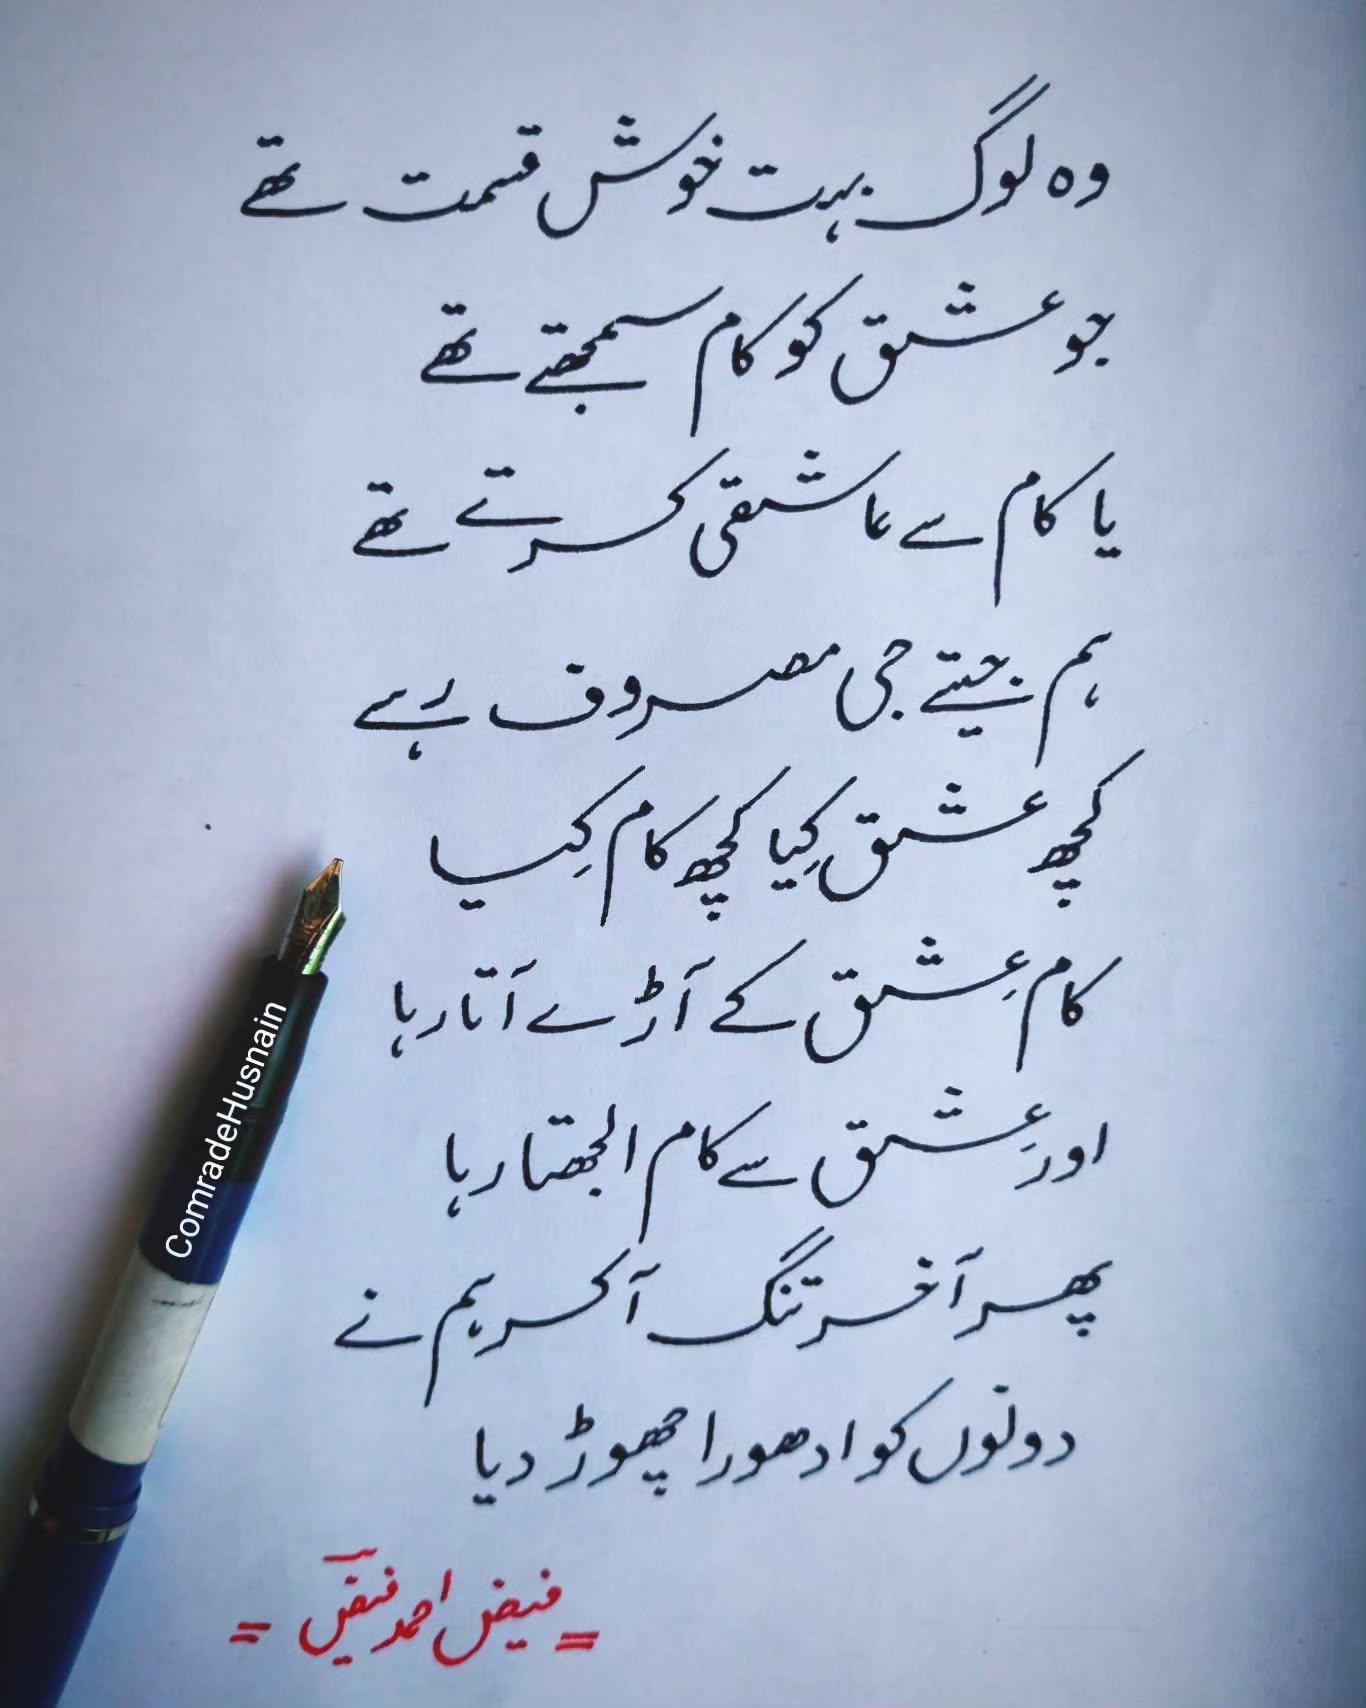 وہ لوگ بہت خوش قسمت تھے
جو عشق کو کام سمجھتے تھے
یا کام سے عاشقی کرتے تھے
ہم جیتے جی مصروف رہے
کچھ عشق کِیا کچھ کام کِیا
کام عِشق کے آڑے آتا رہا
اور عِشق سے کام الجھتا رہا
پھر آخر تنگ آ کر ہم نے
دونوں کو ادھورا چھوڑ دیا
= فیض احمد فیضؔ =
ComradeHusnain